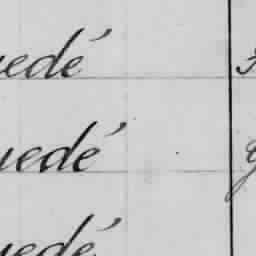 uedé
uedé
uedé